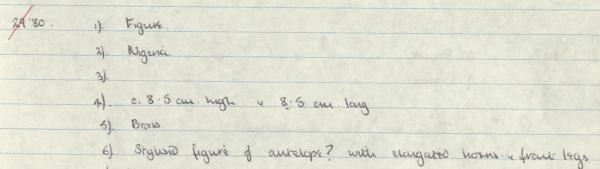 29'80. 1). Figure.
2). Nigeria
3).
4). c. 8.5 cm. high x 8.5 cm. long
5). Brass
6). Stylised figure of antelope? with elongated horns & front legs.